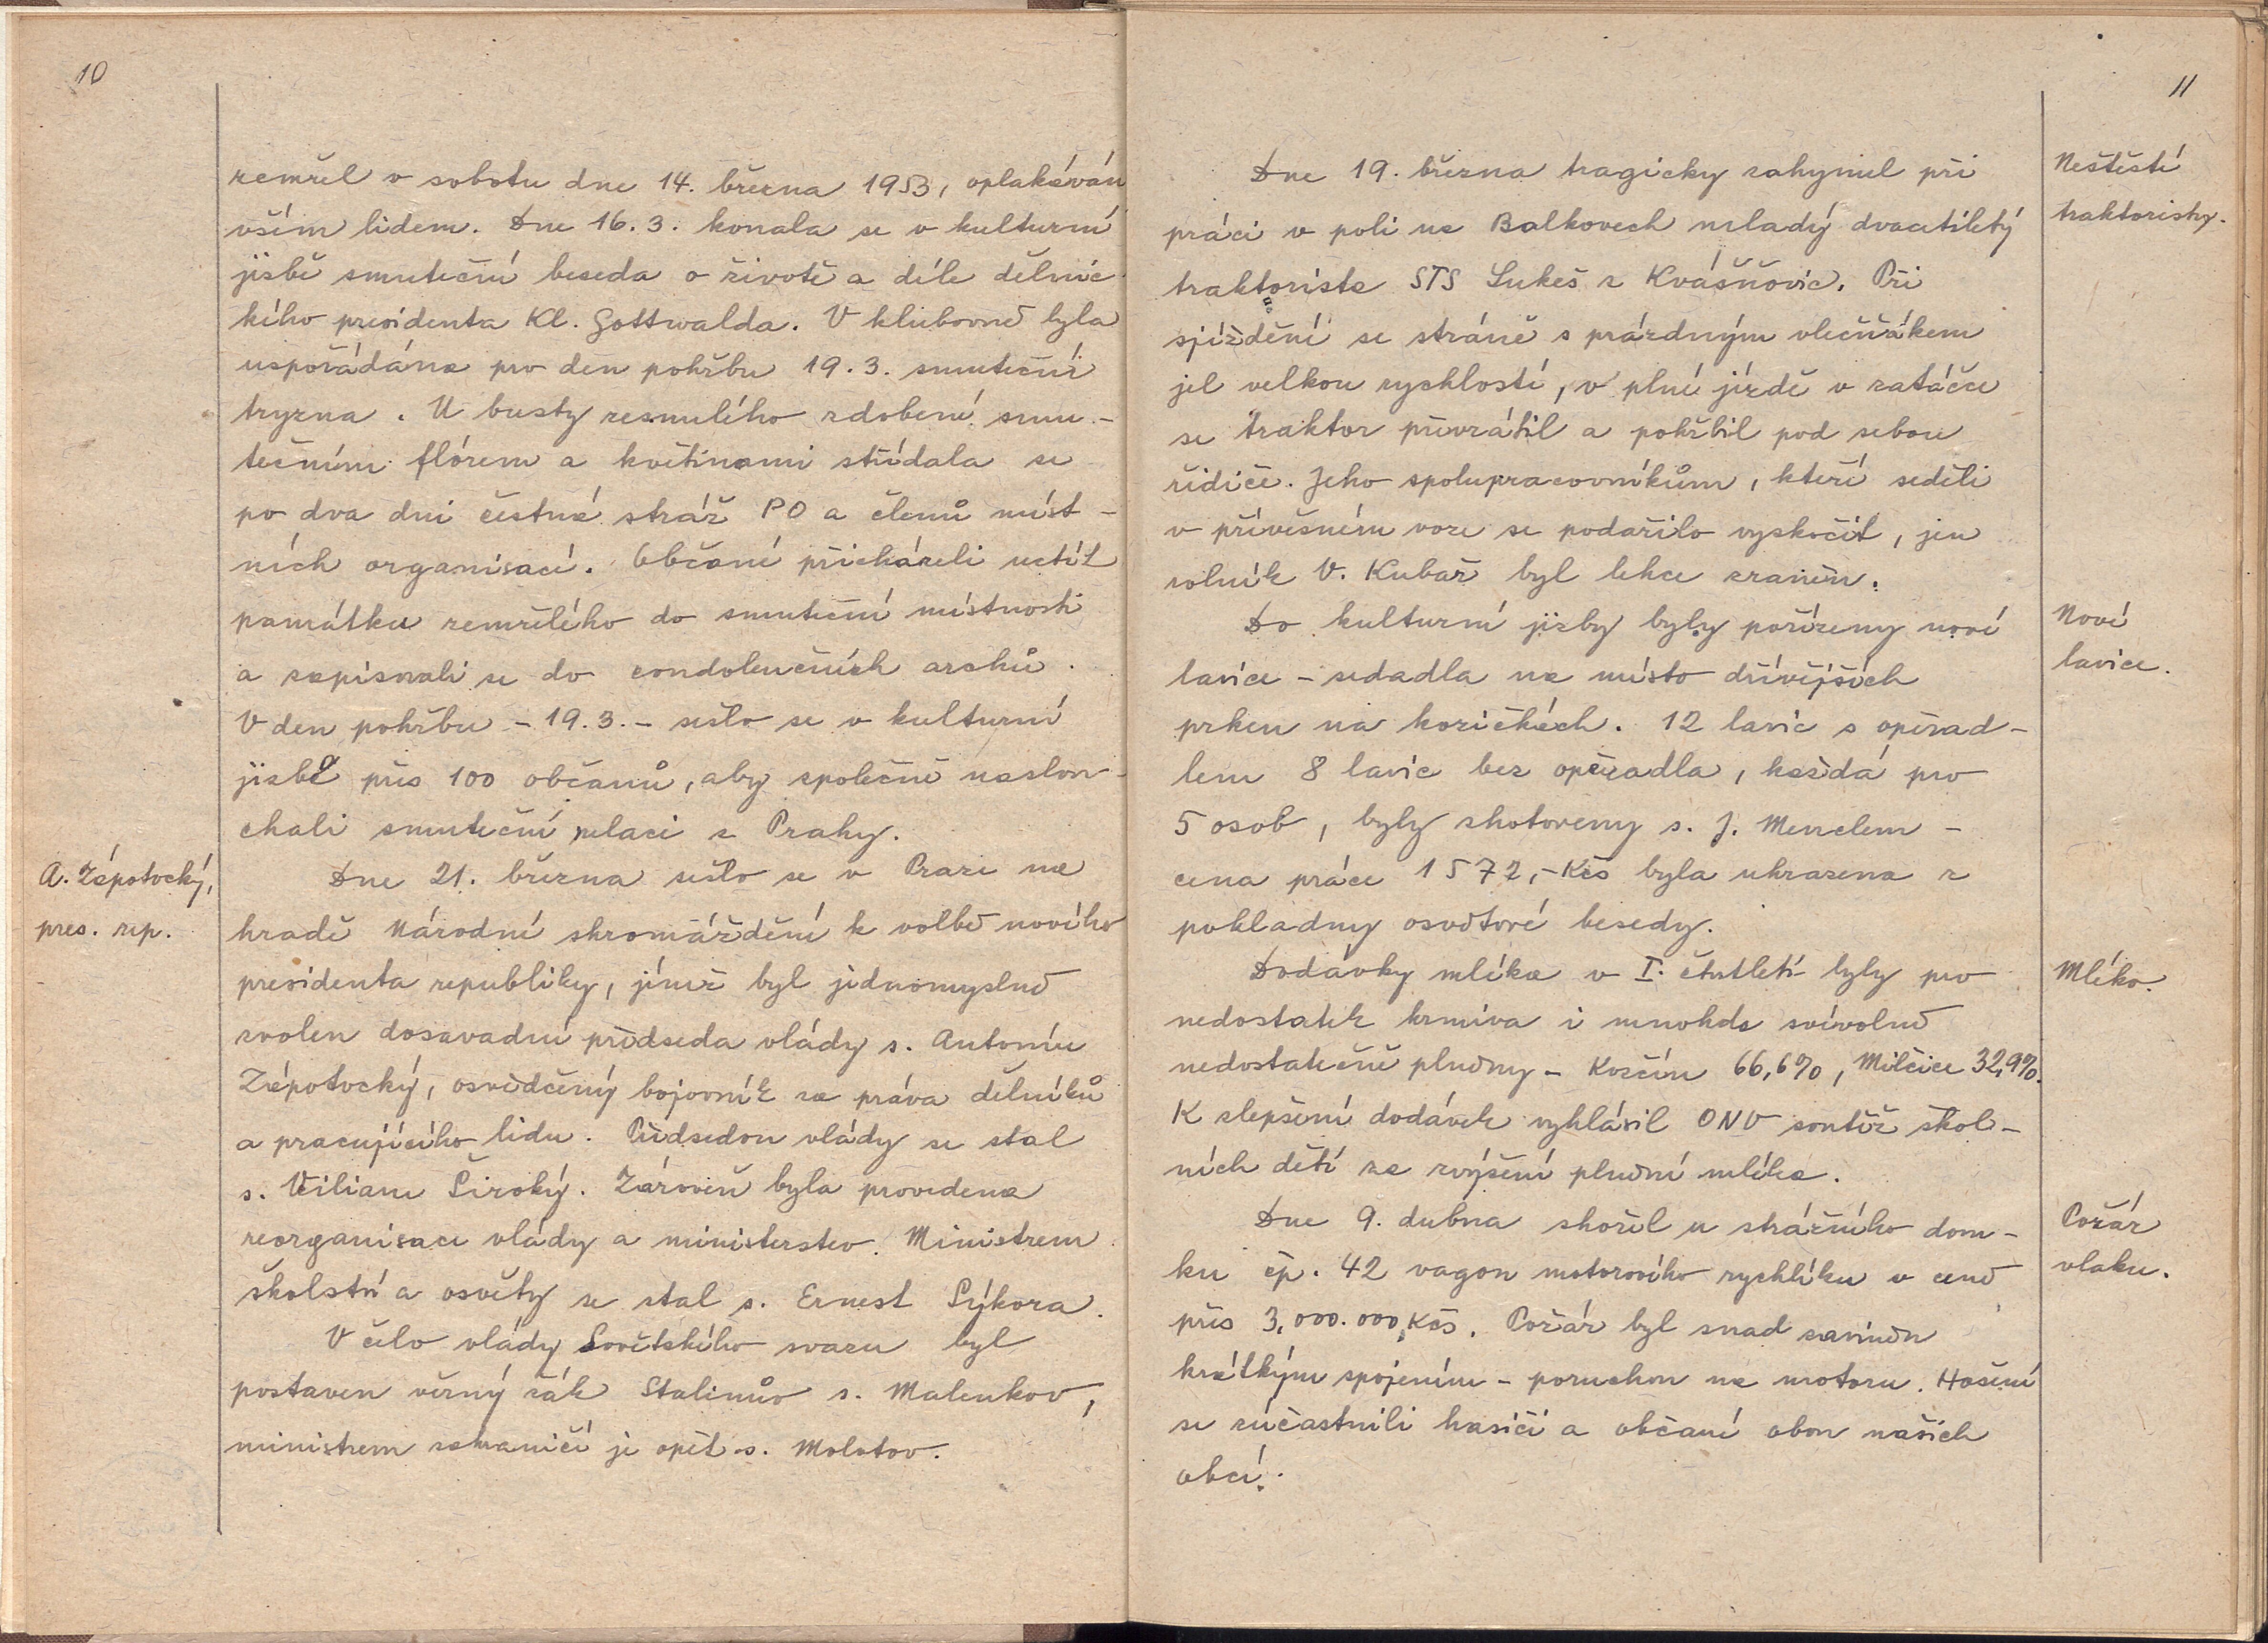 10
zemřel v sobotu dne 14. března 1953, oplakáván
vším lidem. Dne 16. 3. konala se v kulturní
jizbě smuteční beseda o životě a díle dělnic-
kého presidenta Kl. Gottwalda. V klubovně byla
uspořádána pro den pohřbu 19. 3. smuteční
tryzna. U busty zesnulého zdobené smu-
tečním flórem a květinami střídala se
po dva dni čestná stráž PO a členů míst-
ních organisací. Občané přicházeli uctít
památku zemřelého do smuteční místnosti
a zapisovali se do condolenčních archů.
V den pohřbu - 19. 3. - sešlo se v kulturní
jizbě přes 100 občanů, aby společně naslou-
chali smuteční relaci z Prahy.
A. Zápotocký,
pres. rep.
Dne 21. března sešlo se v Praze na
hradě Národní shromáždění k volbě nového
presidenta republiky, jímž byl jednomyslně
zvolen dosavadní předseda vlády s. Antonín
Zápotocký, osvědčený bojovník za práva dělníků
a pracujícího lidu. Předsedou vlády se stal
s. Viliam Široký. Zároveň byla provedena
reorganisace vlády a ministerstev. Ministrem
školství a osvěty se stal s. Ernest Sýkora.
V čelo vlády Sovětského svazu byl
postaven věrný žák Stalinův s. Malenkov,
ministrem zahraničí je opět s. Molotov.
11
Neštěstí
traktoristy.
Dne 19. března tragicky zahynul při
práci v poli na Balkovech mladý dvacetiletý
traktorista STS Lukeš z Kvášňovic. Při
sjíždění se stráně s prázdným vlečňákem
jel velkou rychlostí, v plné jízdě v zatáčce
se traktor převrátil a pohřbil pod sebou
řidiče. Jeho spolupracovníkům, kteří seděli
v přívěsném voze se podařilo vyskočit, jen
rolník V. Kubař byl lehce zraněn.
Nové
lavice.
Do kulturní jizby byly pořízeny nové
lavice - sedadla na místo dřívějších
prken na kozičkách. 12 lavic s opěrad-
lem 8 lavic bez opěradla, každá pro
5 osob, byly zhotoveny s. J. Menclem -
cena práce 1572,- Kčs byla uhrazena z
pokladny osvětové besedy.
Mléko.
Dodávky mléka v I. čtvrtletí byly pro
nedostatek krmiva i mnohde svévolně
nedostatečně plněny - Kozčín 66,6%, Milčice 32,9%.
K zlepšení dodávek vyhlásil ONV soutěž škol-
ních dětí za zvýšení plnění mléka.
Požár
vlaku.
Dne 9. dubna shořel u strážního dom-
ku čp. 42 vagon motorového rychlíku v ceně
přes 3,000.000,Kčs. Požár byl snad zaviněn
krátkým spojením - poruchou na motoru. Hašení
se zúčastnili hasiči a občané obou našich
obcí.